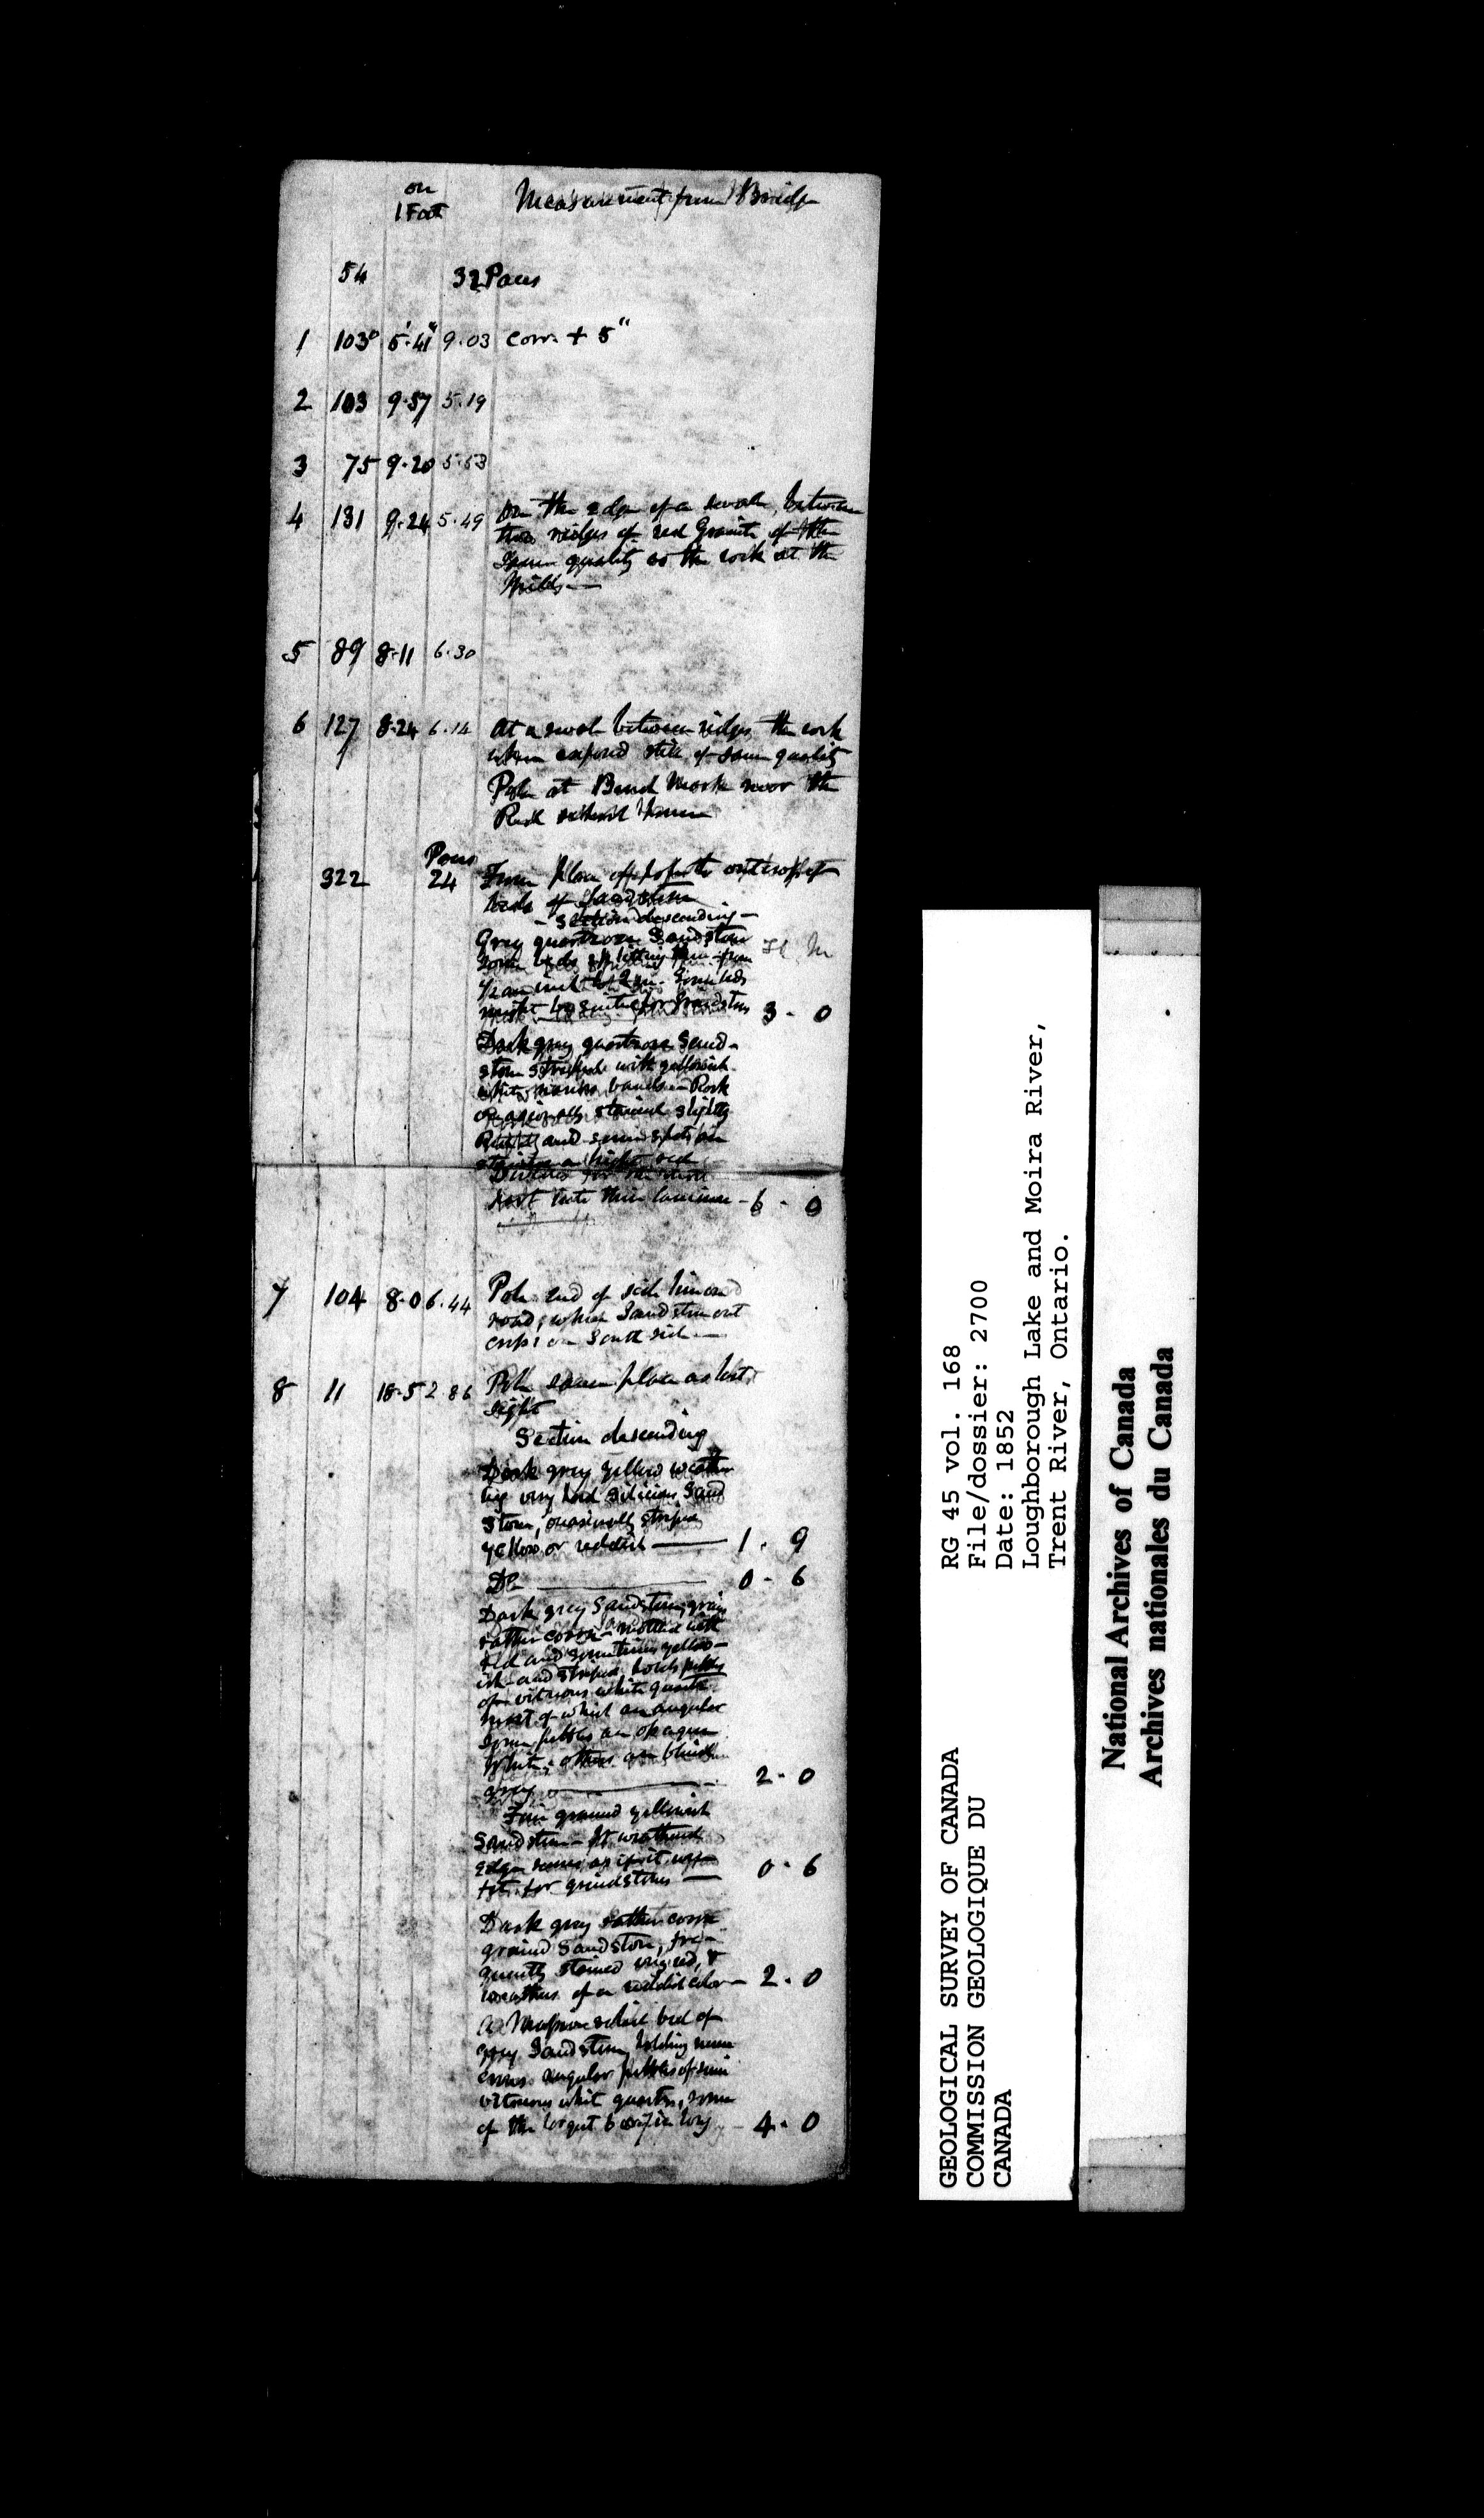 on
1 Foot
Measurement from Bridge
54 32 Paces
1 103° 5'.41" 9.03 Corr. + 5"
2 103 9.57 5.19
3 75 9.20 5.53
4 131 9.24 5.49 On the edge of a swale, between
two ridges of red Granite of the
same quality as the rock at the
Mills —
5 89 8.11 6.30
6 127 8.24 6.14 At a swale between ridges the rock
when exposed still of same quality
Pole at Bench Mark near the
Red School House
Paces
322 24 From place of to the outcrop of
beds of Sandstone
– Section descending –
Grey quartzose Sandstone Ft In
some beds splitting thin from
1/2 an inch to 2 in. Some beds
might be suited for Grindstones 3 - 0
Dark grey quartzose Sand-
stone striped with yellowish
white narrow bands – Rock
occasionally stained slightly
and some spots in
a bright red
Divides for the most
part into thin laminae – 6 - 0
7 104 8.0 6.44 Pole end of side line and
road, where Sandstone out
crops on South side —
8 11 18.5 2.86 Pole same place as last
sight
Section descending
Dark grey yellow weather
ing very hard silicious Sand
stone, occasionally striped
yellow or reddish — 1 . 9
Do — 0 - 6
Dark grey Sandstone, grain
rather coarse – mottled with
red and sometimes yellow-
ish – and striped, holds pebbles
of vitreous white quartz
most of which are angular
some pebbles are opaque
white, others are bluish
grey — 2 - 0
Fine grained yellowish
Sandstone – At weathered
edges seems as if it were
fit for grindstones — 0 - 6
Dark grey rather coarse
grained Sandstone, fre-
quently stained red, &
weathers of a reddish color — 2 . 0
A Massive solid bed of
grey Sandstone, holding num
erous angular pebbles of semi
vitreous white quartz, some
of the largest 6 or 7 in long – 4 . 0
GEOLOGICAL SURVEY OF CANADA
COMMISSION GEOLOGIQUE DU
CANADA
RG 45 vol. 168
File/dossier: 2700
Date: 1852
Loughborough Lake and Moira River,
Trent River, Ontario.
National Archives of Canada
Archives nationales du Canada